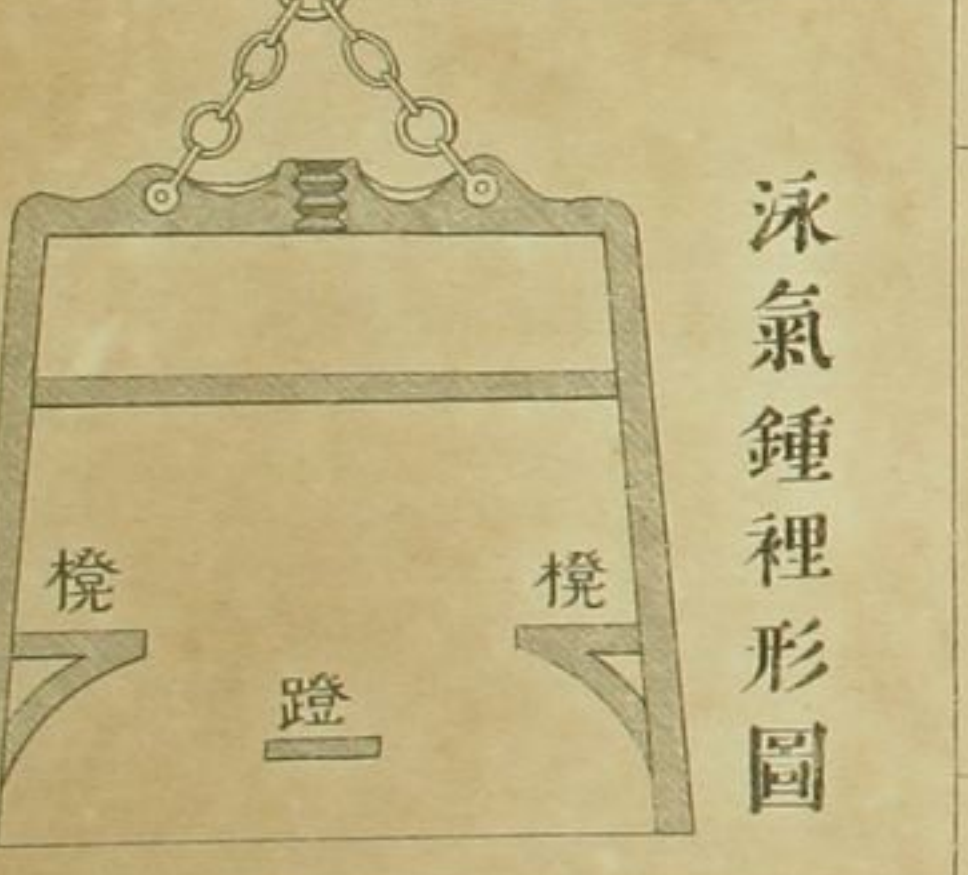 泳氣鍾裡形圖
櫈
櫈
蹬